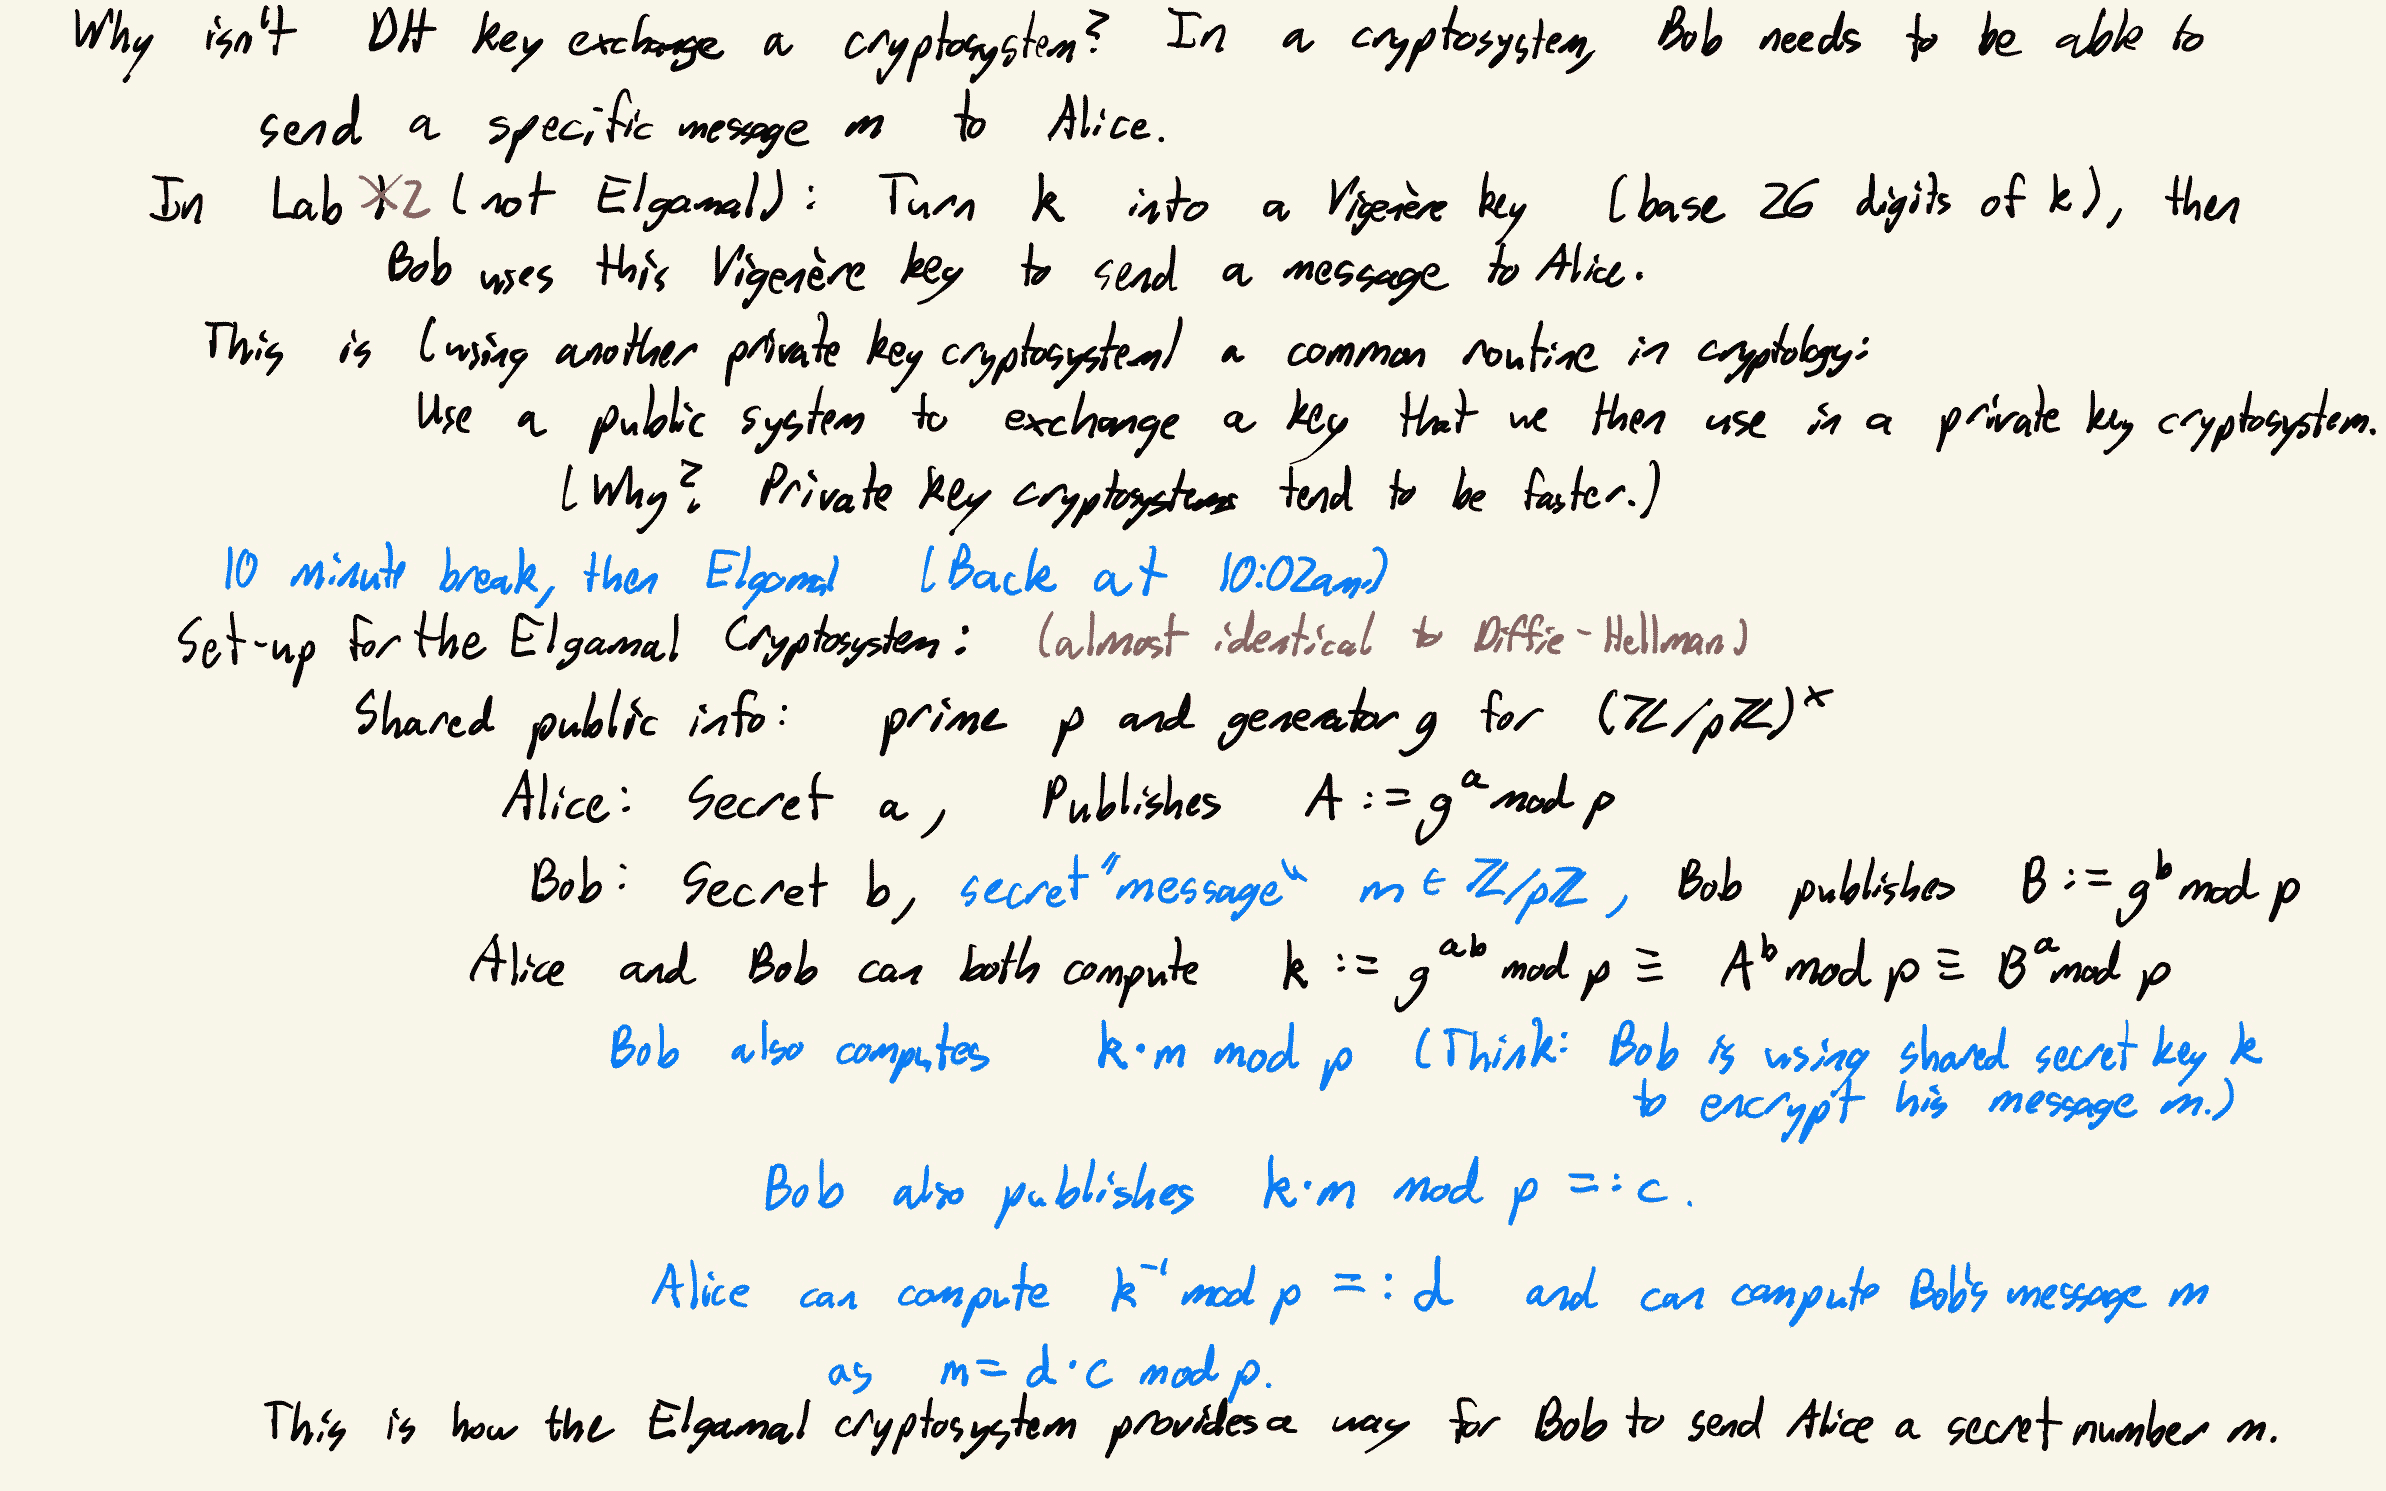 Why isn't DH key exchange a cryptosystem? In a cryptosystem, Bob needs to be able to
send a specific message m to Alice.
In Lab 2 (not Elgamal): Turn k into a Vigenère key (base 26 digits of k), then
Bob uses this Vigenère key to send a message to Alice.
This is (using another private key cryptosystem) a common routine in cryptology:
Use a public system to exchange a key that we then use in a private key cryptosystem.
(Why? Private key cryptosystems tend to be faster.)
10 minute break, then Elgamal (Back at 10:02am)
Set-up for the Elgamal Cryptosystem: (almost identical to Diffie-Hellman)
Shared public info: prime p and generator g for (ℤ/pℤ)^×
Alice: Secret a, Publishes A := g^a mod p
Bob: Secret b, secret "message" m ∈ ℤ/pℤ, Bob publishes B := g^b mod p
Alice and Bob can both compute k := g^ab mod p ≡ A^b mod p ≡ B^a mod p
Bob also computes k·m mod p (Think: Bob is using shared secret key k
to encrypt his message m.)
Bob also publishes k·m mod p =: c.
Alice can compute k^-1 mod p =: d and can compute Bob's message m
as m = d·c mod p.
This is how the Elgamal cryptosystem provides a way for Bob to send Alice a secret number m.